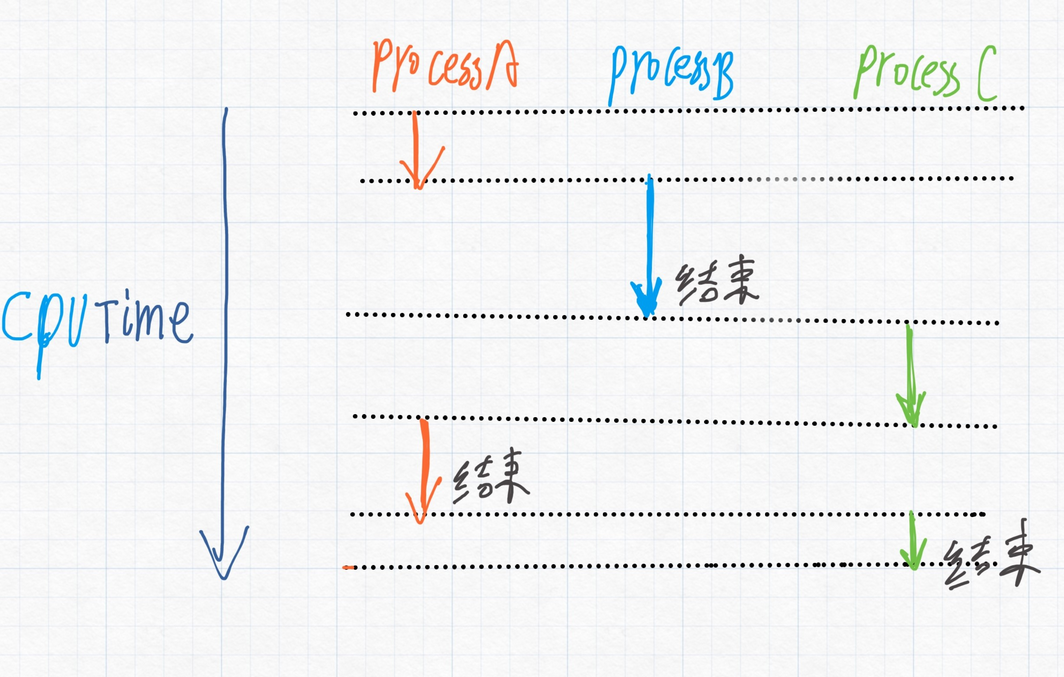 ProcessA
ProcessB
Process C
结束
CPUTime
结束
结束